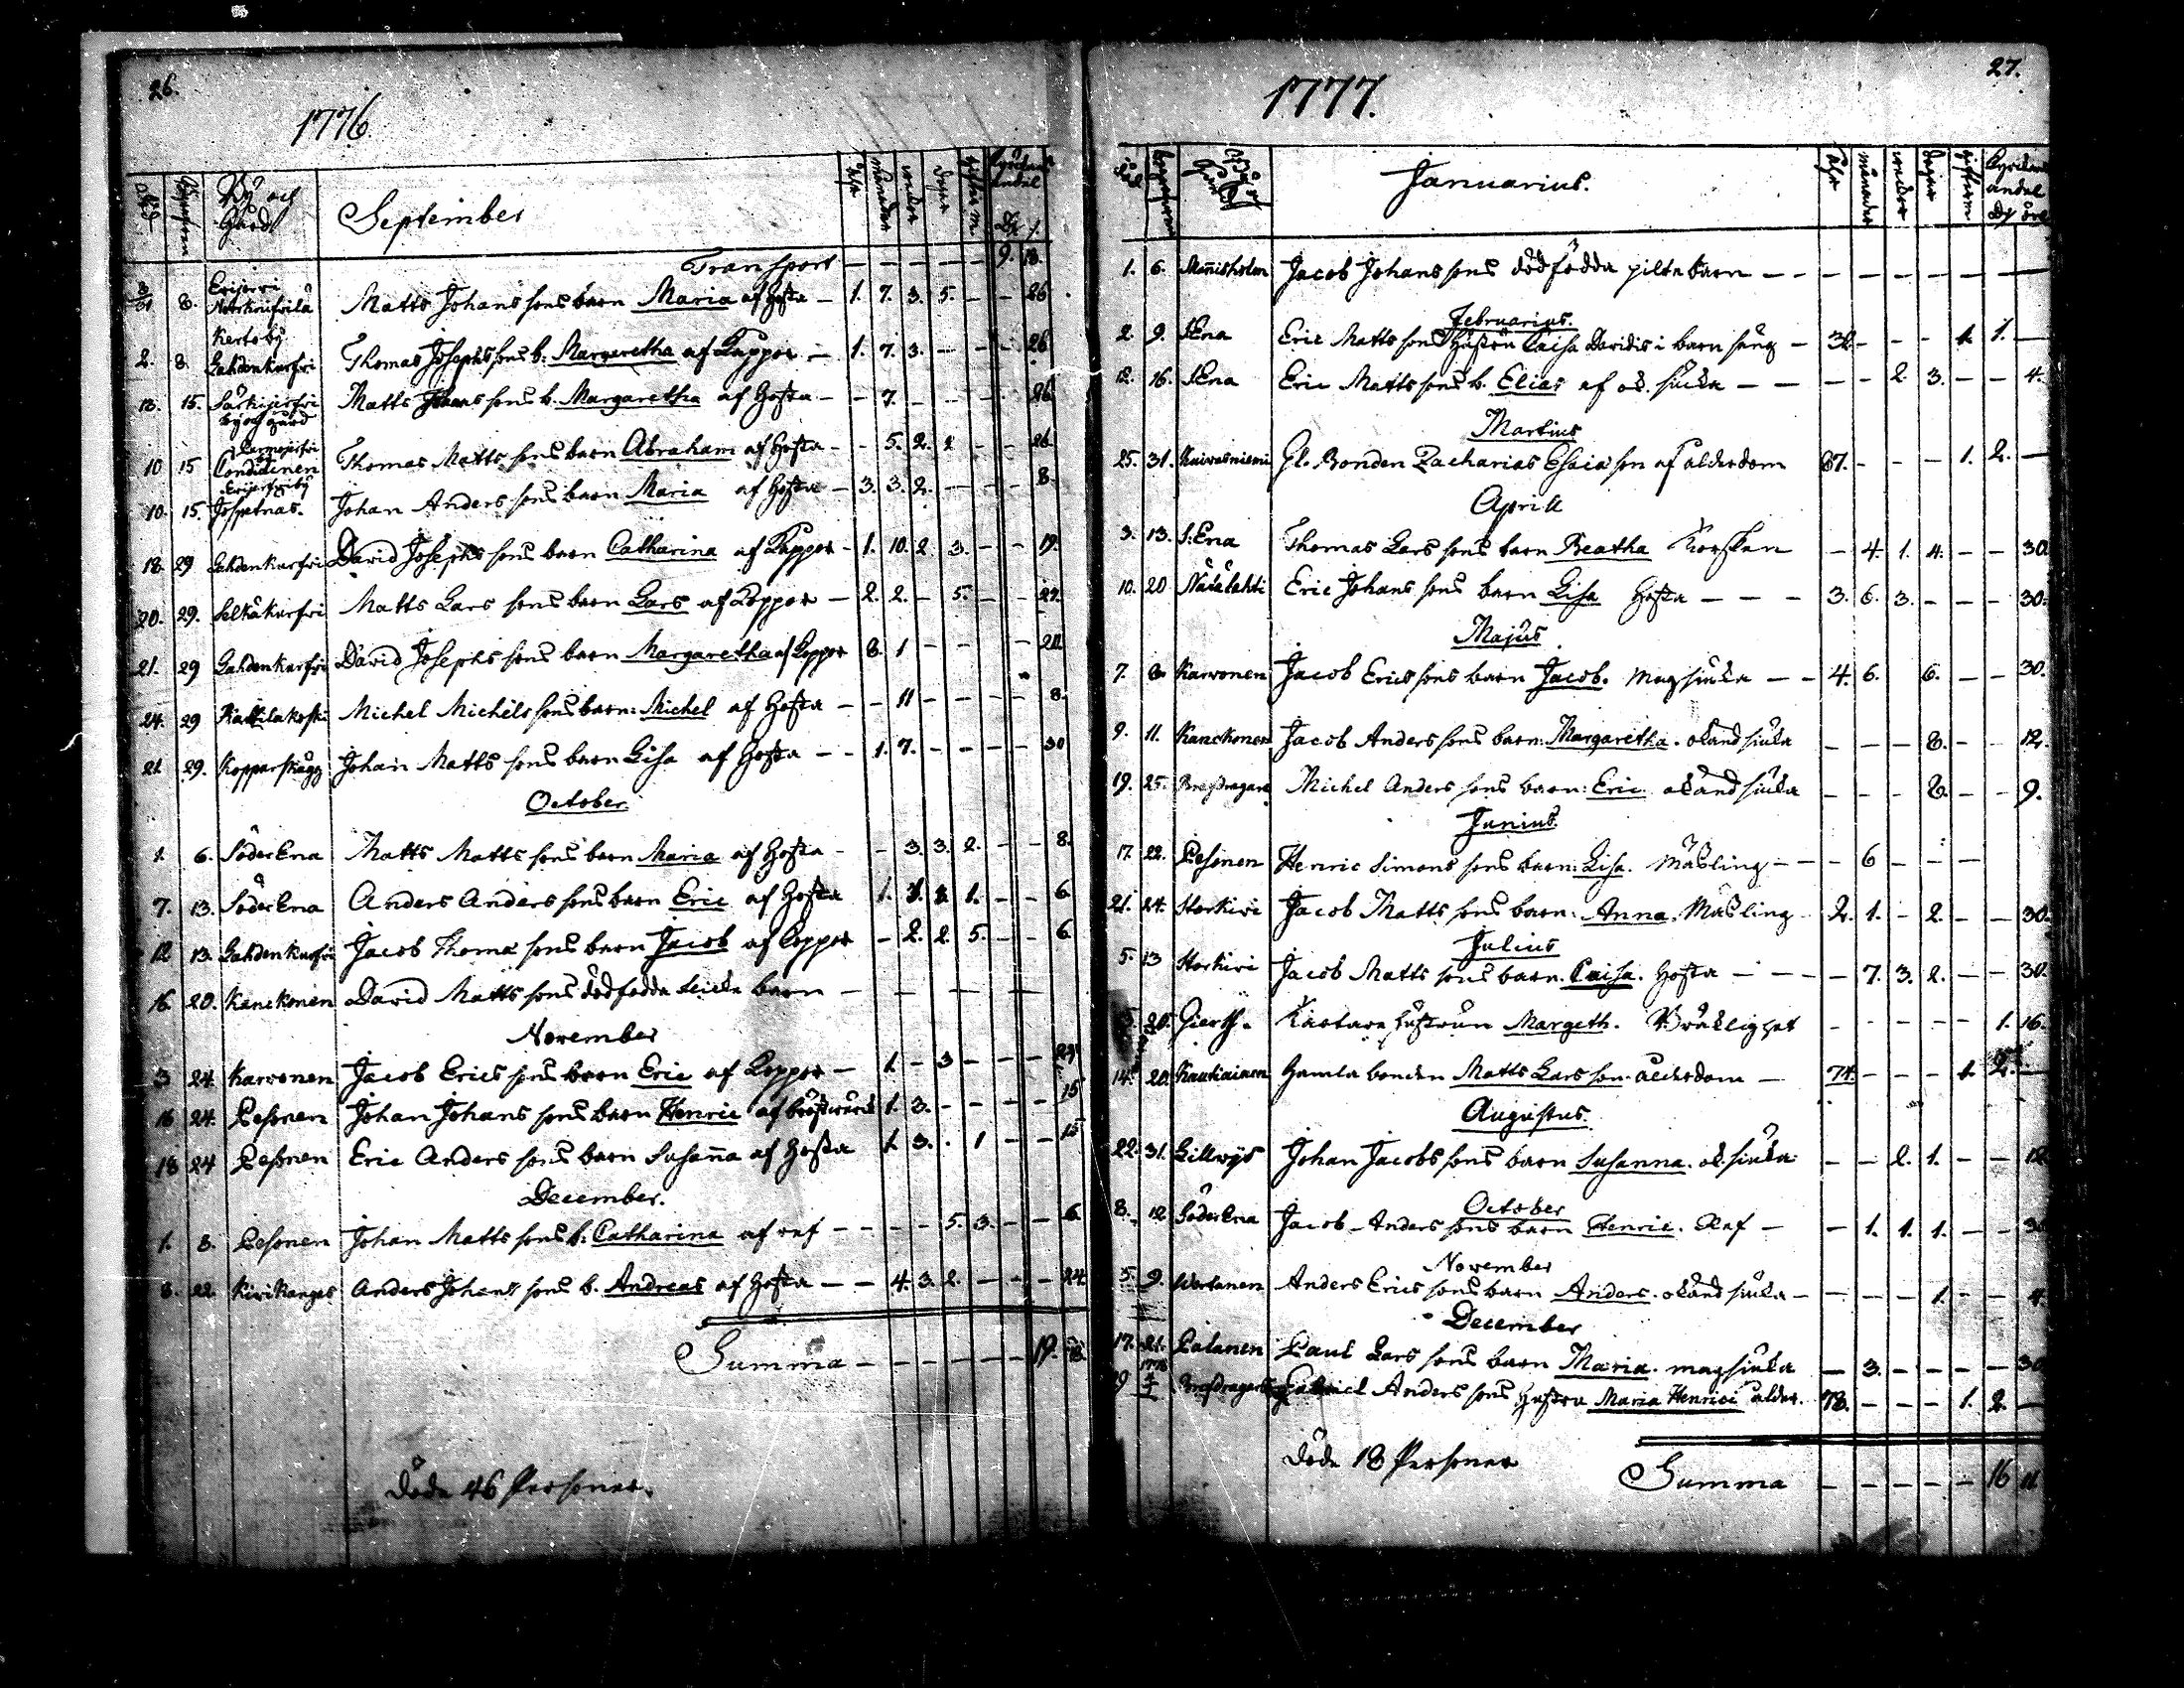 26.
1776.
Död Begrafven By och Gård September Åhr månader veckor dagar giftir m Kyrckans andel
Dr /.
Transport — — — — — 9. 18.
3/31 8. Erijervi Matts Johans sons barn Maria af Hosta — 1. 7. 3. 5. — — 26
Kertoby
2. 8. Lahdenkurfvi Thomas Josephs sons b: Margaretha af Koppor — 1. 7. 3. — — — 26
13. 15. Särkijerfvi Matts Johans sons b. Margaretha af Hosta — — 7. — — — — 26
By och gård
10 15 Condiainen Thomas Matts sons barn Abraham af Hosta — — 5. 2. 2 — — 26.
Erijerfvi by
10. 15. Johan Anders sons barn Maria af Hosta — 3. 3. 2. — — — 8.
18. 29 Lahdenkurfvi David Josephs sons barn Catharina af Koppor — 1. 10. 2. 3. — — 19.
20. 29. Selkäkurfvi Matts Lars sons barn Lars af Koppor — 2. 2. — 5. — — 29.
21. 29 Lahdenkurfvi David Josephs sons barn Margaretha af Koppor 3. 1 — — — —
24. 29 Kattilakoski Michel Michels sons barn: Michel af Hosta — — 11 — — — — 8.
21. 29. Kopparskägg Johan Matts sons barn Lisa af Hosta — — 1. 7. — — — — 30
October.
1. 6. SöderEna Matts Matts sons barn Maria af Hosta — — 3. 3. 2. — — 8.
7. 13. SöderEna Anders Anders sons barn Eric af Hosta 1. 1. — — 6.
12 13. Lahdenkurfvi Jacob Thomæ sons barn Jacob af Koppor — 2. 2. 5. — — 6.
16. 20. Kanckonen David Matts sons dödfödda barn — — — — —
November
3 24. Karvonen Jacob Erics sons barn Eric af Koppor — 1. — 3 — — — 29
16 24. Pesonen Johan Johans sons barn Henric af bröstwärk 1. 3. — — — — 15
18 24 Pesonen Eric Anders sons barn Susanna af Hosta 1. 3. . 1 — — 15
December.
1. 8. Pesonen Johan Matts sons b: Catharina af ref — — — — 5. 3. — — 6.
8. 22. Kivikangas Anders Johans sons b. Andreas af Hosta — — 4. 3. 2. — — — 24.
Summa — — — — — — 19. 18.
Döde 46 Personer.
27.
1777.
Död begrafven By och Gård Januarius. Åhr månader veckor dagar giftom Kyrckans andel
Dr öre
1. 6. Mannisholm Jacob Johans sons dödfödda piltebarn — — — — — — — —
Februarius.
2. 9. SEna Eric Matts sons Hustru Caisa Davidis i barn säng — — — — 1. 1. —
12. 16. SEna Eric Matts sons b. Elias af ok. siuka — — — — 2. 3. — — 4.
Martius
25. 31. Kaivosniemi Gl. Bonden Zacharias Esaiæ son af ålderdom 87. — — — 1. 2. —
Aprill
3. 13. S:Ena Thomas Lars sons barn Beatha Koppen — 4. 1. 4. — — 30.
10. 20 Nätälahti Eric Johans sons barn Lisa Hosta — — — 3. 6. 3. — — — 30.
Majus.
7. 8. Karvonen Jacob Erics sons barn Jacob. Magsiuka — — 4. 6. 6. — — 30.
9. 11. Kanckonen Jacob Anders sons barn: Margaretha. okänd siuka — — — 8. — — 12.
19. 25. Brasdragare Michel Anders sons barn: Eric okänd siuka — — — 8. — — 9.
Junius.
17. 22. Pesonen Henric Simons sons barn: Lisa. Mäsling — — — 6 — — —
21. 24. Storkivi Jacob Matts sons barn: Anna. Mäsling 2. 1. — 2. — — 30.
Julius
5. 13 Storkivi Jacob Matts sons barn. Caisa. Hosta — — — — 7. 3. 2. — — 30.
20. Gierth. Hustrun Margeth. Bräklighet — — — — — 1. 16.
14. 20. Kautiainen Gamla bonden Matts Lars son. ålderdom — 74. — — — 1. 2. —
Augustus.
22. 31. Lillwijs Johan Jacobs sons barn Susanna. ok. siuka — — 2. 1. — — 12.
October
8. 12 SöderEna Jacob Anders sons barn Henric. Ref — — 1. 1. 1. — — 30
November
5. 9. Wertanen Anders Erics sons barn Anders. okänd siuka — — — — 1. — — 4.
December
17. 21. Palanen Paul Lars sons barn Maria. magsiuka — 3. — — — — 30
1778
29 4/1 Brasdragare Gabriel Anders sons Hustru Maria Henrici ålder. 78. — — — 1. 2. —
Döde 18 Personer
Summa — — — — — 16 11